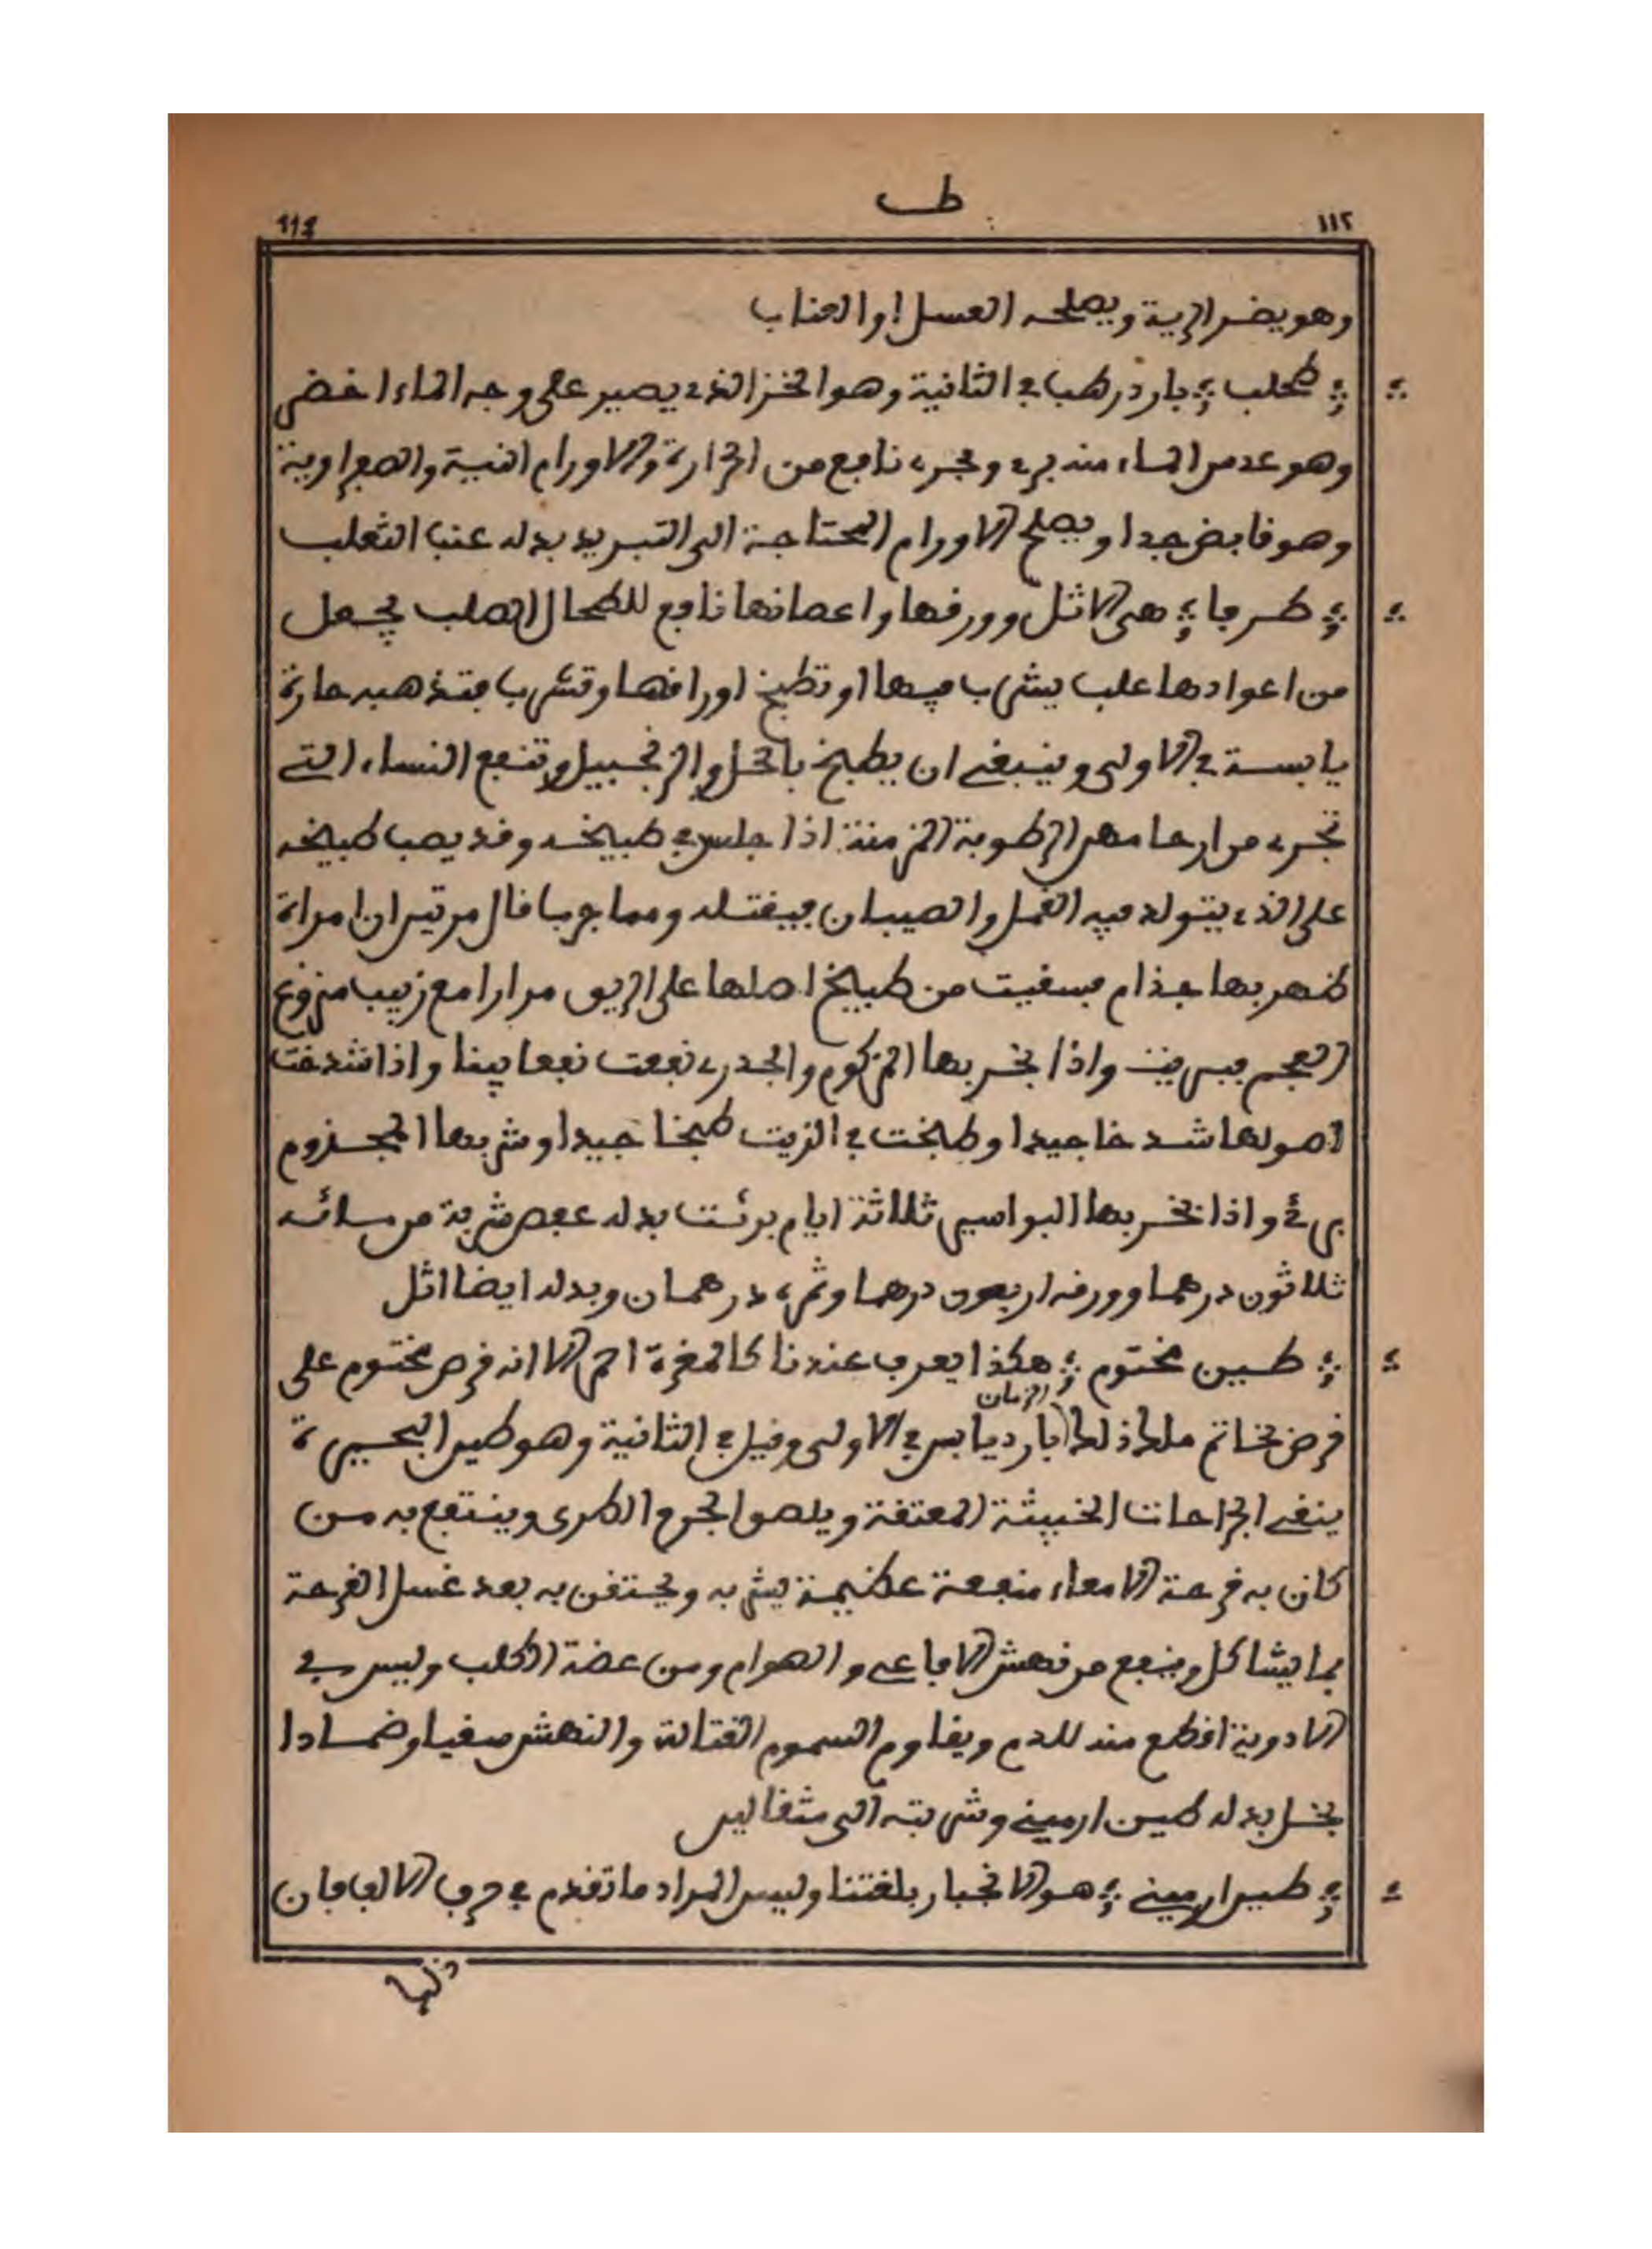 طب
١١٢
١١٤
وهو يضر الرية ويصلحه العسل او العناب
طحلب بارد رطب في الثانية وهو الخز الذي يصير على وجه الماء اخضر
وهو عدس الماء منه بري وبحري نافع من الحرارة والاورام النية والصفراوية
وهو قابض جدا ويصلح الاورام المحتاجة الى التبريد بدله عنب الثعلب
طرفا هي الاثل وورقها واغصانها نافع للطحال الصلب يجعل
من اعوادها علب يشرب فيها او تطبخ اوراقها وتشرب فتذهبه حارة
يابسة في الاولى وينبغي ان يطبخ بالخل والزنجبيل وتنفع النساء التي
تجري من ارحامهن الرطوبة المزمنة اذا جلس في طبيخه وقد يصب طبيخه
على الذي يتولد فيه القمل والصيبان فيقتله ومما جرب قال مرتين ان امراة
ظهر بها جذام فسقيت من طبيخ اصلها على الريق مرارا مع زبيب منزوع
العجم فبرئت واذا بخر بها المزكوم والجدري نفعت نفعا بينا واذا شدخت
اصولها شدخا جيدا وطبخت في الزيت طبخا جيدا وشربها المجذوم
برئ واذا بخر بها البواسير ثلاثة ايام برئت بدله عفص شربة من مائه
ثلاثون درهما وورقه اربعون درهما وثمره درهمان وبدله ايضا اثل
طين مختوم هكذا يعرف عندنا كالمغرة احمر الا انه قرص مختوم على
قرض بخاتم ملك ذلك الزمان بارد يابس في الاولى وقيل في الثانية وهو طين البحيرة
ينفي الجراحات الخبيثة المعتقة ويلصق الجرح الطري وينتفع به من
كان به قرحة الامعاء منفعة عظيمة يشربه ويحتقن به بعد غسل القرحة
بما يشاكل وينفع من نهش الافاعي والهوام ومن عضة الكلب وليس في
الادوية اقطع منه للدم ويقاوم السموم القتالة والنهش سقيا وضمادا
بخل بدله طين ارميني وشربته الى مثقالين
طين ارميني هو الانجبار بلغتنا وليس المراد ما تقدم في حرف الالف فان